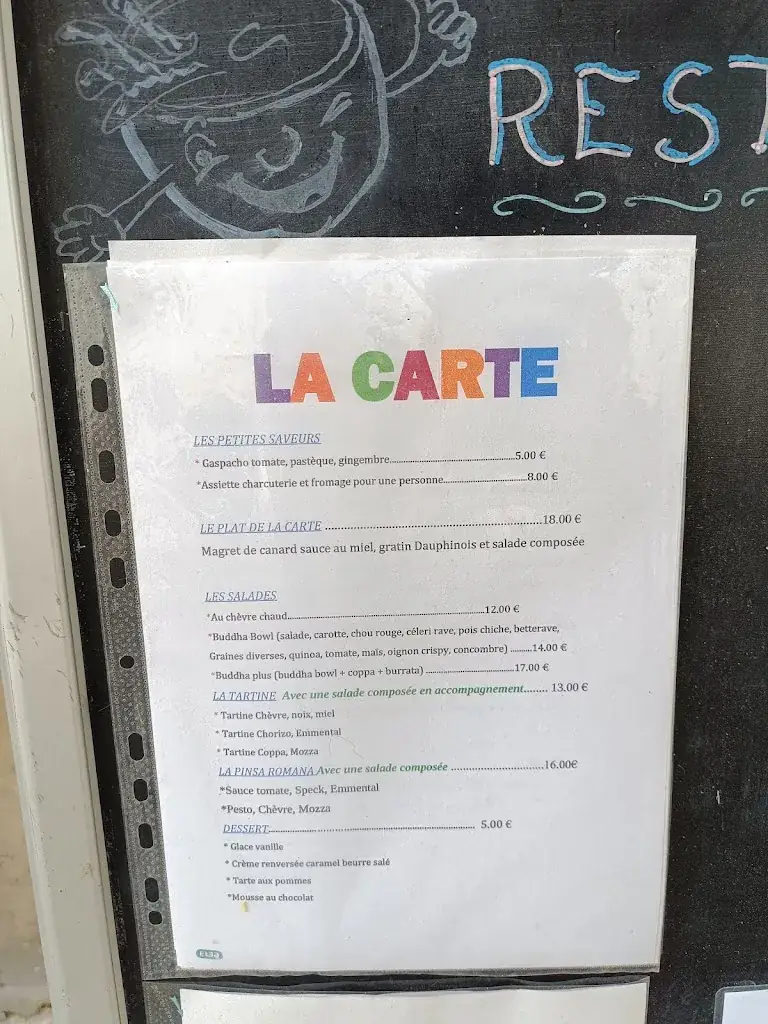 REST
LA CARTE
LES PETITES SAVEURS
* Gaspacho tomate, pastèque, gingembre..........5.00 €
*Assiette charcuterie et fromage pour une personne..........8.00 €
LE PLAT DE LA CARTE ..........18.00 €
Magret de canard sauce au miel, gratin Dauphinois et salade composée
LES SALADES
*Au chèvre chaud..........12.00 €
*Buddha Bowl (salade, carotte, chou rouge, céleri rave, pois chiche, betterave,
Graines diverses, quinoa, tomate, maïs, oignon crispy, concombre) ..........14.00 €
*Buddha plus (buddha bowl + coppa + burrata) ..........17.00 €
LA TARTINE Avec une salade composée en accompagnement........ 13.00 €
* Tartine Chèvre, noix, miel
* Tartine Chorizo, Emmental
* Tartine Coppa, Mozza
LA PINSA ROMANA Avec une salade composée ..........16.00€
*Sauce tomate, Speck, Emmental
*Pesto, Chèvre, Mozza
DESSERT.......... 5.00 €
* Glace vanille
* Crème renversée caramel beurre salé
* Tarte aux pommes
*Mousse au chocolat